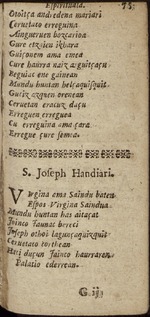 Espirituala. 75.
Otoitça andredena mariari
Ceruetaco erreguina
Aingueruen bozcarioa
Gure etzaien ikhara
Guiçonem ama emea
Cure haurra naiz
Beguiac ene gainean
Mundu huntan
Guiz azquen orenean
Ceruetan eracuz daçu
Erreguen erreguea
Cu erreguina ama çara
Erregue çure semea.
S. Joseph Handiari.
Virgina ema Saindu baten
Espos Virgina Saindua
Mundu huntan has aitaçat
Jainco Jaunac bereci
Joseph othoi
Ceruetaco tortheen
duçun Jainco haurraren
Palatio ederrean.
G iij